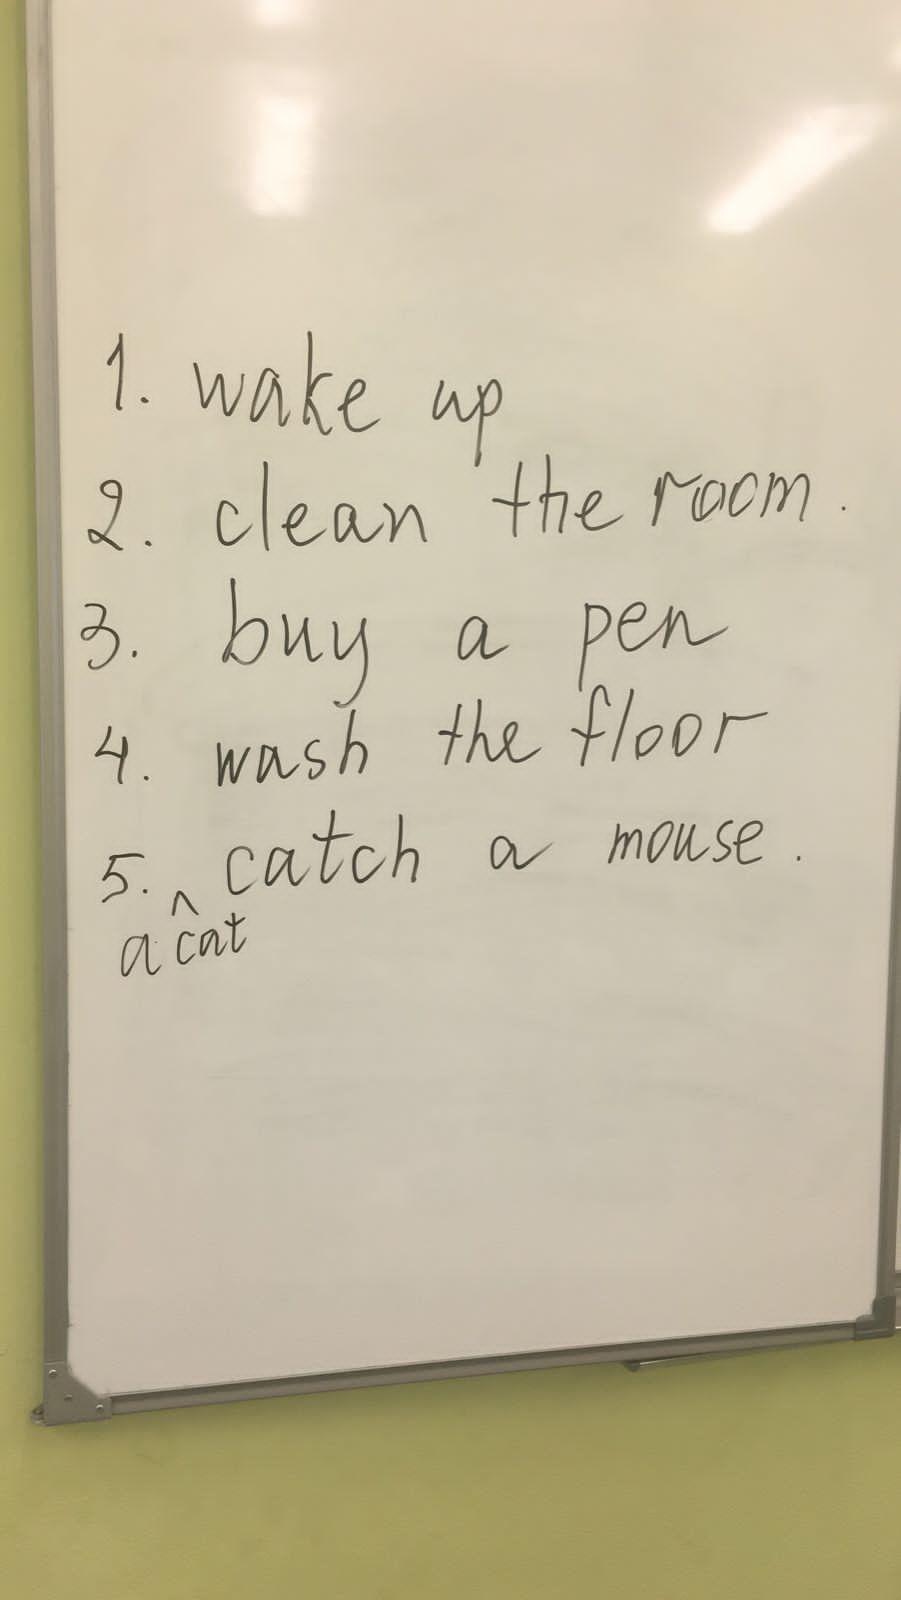 1. wake up
2. clean the room.
3. buy a pen
4. wash the floor
5. ^ catch a mouse.
a cat